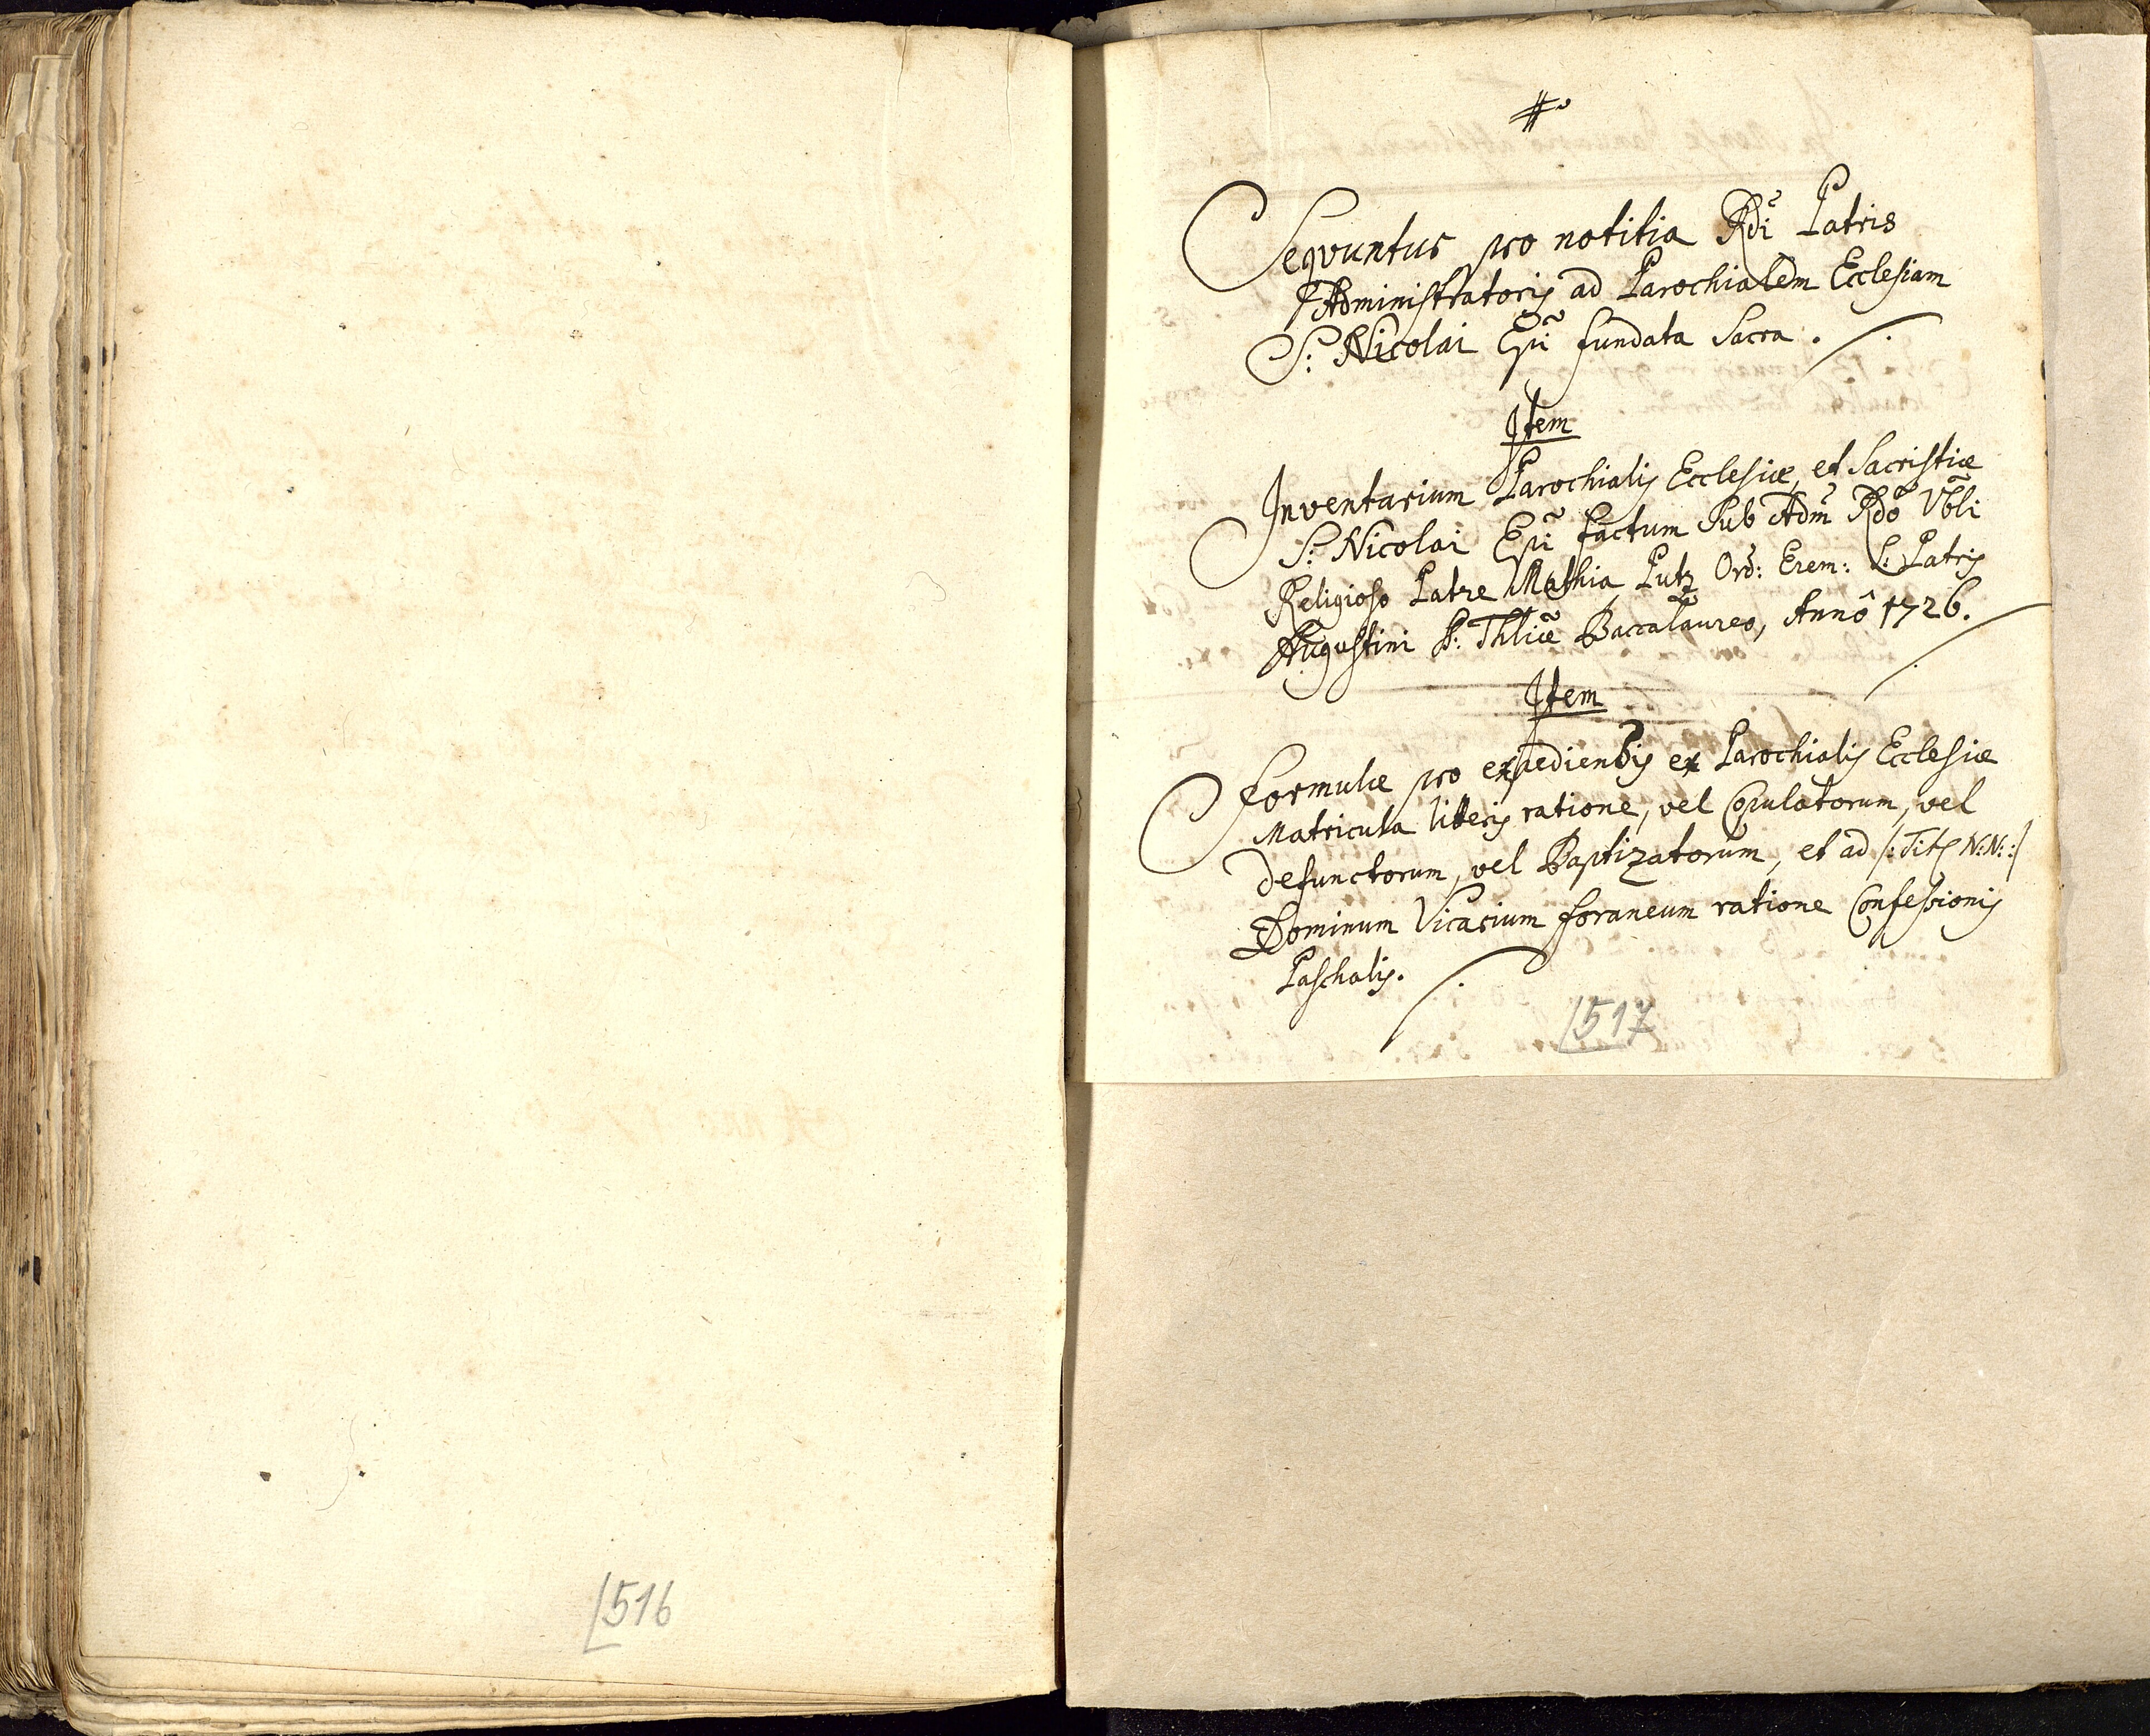 516
#
Seqvuntur pro notitia Rdi Patris
Administratoris ad Parochialem Ecclesiam
S: Nicolai Epi fundata Sacra.
Item
Inventarium Parochialis Ecclesiæ, et Sacristiæ
S: Nicolai Epi factum Sub Adm Rdo Vbli
Religioso Patre Mathia Putz Ord: Erem: S: Patris
Augustini S: Thliæ Baccalaureo, Annô 1726.
Item
Formulæ pro expediendis ex Parochialis Ecclesiæ
Matricula litteris ratione, vel Copulatorum, vel
Defunctorum, vel Baptizatorum, et ad /: Tit N:N: :/
Dominum Vicarium foraneum ratione Confessionis
Paschalis.
517